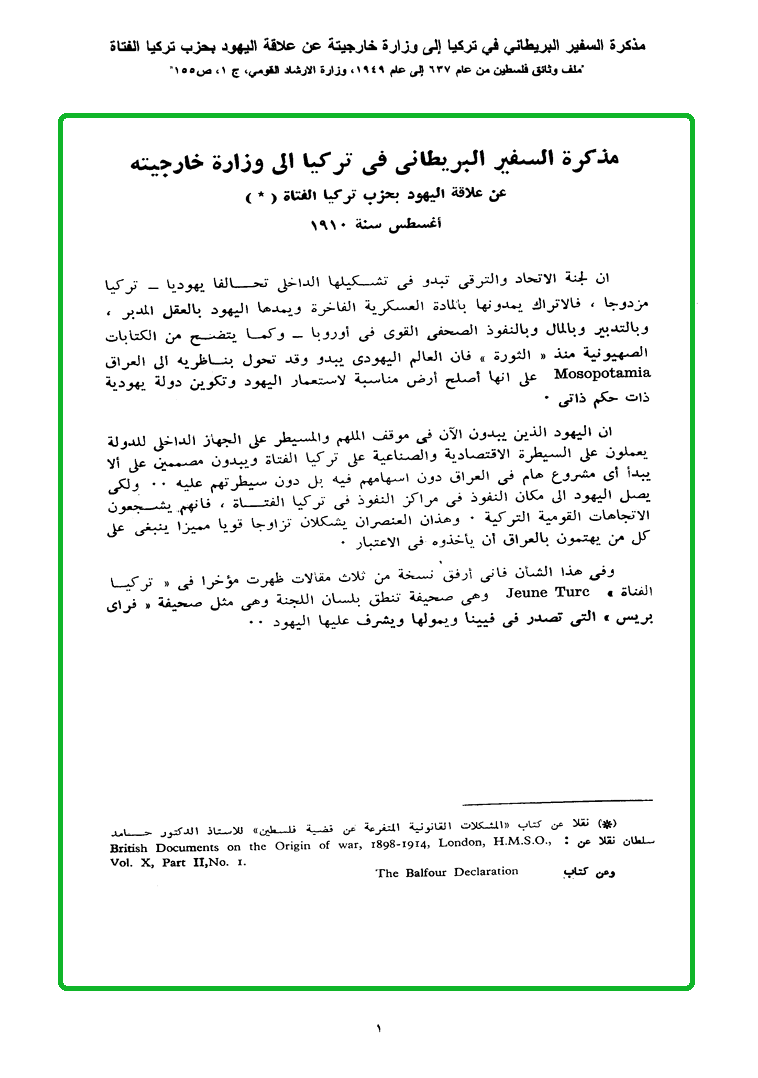 مذكرة السفير البريطاني في تركيا إلى وزارة خارجيتة عن علاقة اليهود بحزب تركيا الفتاة
"ملف وثائق فلسطين من عام ٦٣٧ إلى عام ١٩٤٩، وزارة الارشاد القومي، ج ١، ص١٥٥"
مذكرة السفير البريطانى فى تركيا الى وزارة خارجيته
عن علاقة اليهود بحزب تركيا الفتاة ( * )
أغسطس سنة ١٩١٠
ان لجنة الاتحاد والترقى تبدو فى تشكيلها الداخلى تحالفا يهوديا – تركيا
مزدوجا ، فالاتراك يمدونها بالمادة العسكرية الفاخرة ويمدها اليهود بالعقل المدبر ،
وبالتدبير وبالمال وبالنفوذ الصحفى القوى فى أوروبا – وكما يتضح من الكتابات
الصهيونية منذ « الثورة » فان العالم اليهودى يبدو وقد تحول بناظريه الى العراق
Mosopotamia على انها أصلح أرض مناسبة لاستعمار اليهود وتكوين دولة يهودية
ذات حكم ذاتى ٠
ان اليهود الذين يبدون الآن فى موقف الملهم والمسيطر على الجهاز الداخلى للدولة
يعملون على السيطرة الاقتصادية والصناعية على تركيا الفتاة ويبدون مصممين على ألا
يبدأ أى مشروع هام فى العراق دون اسهامهم فيه بل دون سيطرتهم عليه ٠٠ ولكى
يصل اليهود الى مكان النفوذ فى مراكز النفوذ فى تركيا الفتاة ، فانهم يشجعون
الاتجاهات القومية التركية ٠ وهذان العنصران يشكلان تزاوجا قويا مميزا ينبغى على
كل من يهتمون بالعراق أن يأخذوه فى الاعتبار ٠
وفى هذا الشأن فانى أرفق نسخة من ثلاث مقالات ظهرت مؤخرا فى « تركيا
الفتاة » Jeune Turc وهى صحيفة تنطق بلسان اللجنة وهى مثل صحيفة « فراى
بريس » التى تصدر فى فيينا ويمولها ويشرف عليها اليهود ٠٠
(*) نقلا عن كتاب «المشكلات القانونية المتفرعة عن قضية فلسطين» للاستاذ الدكتور حامد
سلطان نقلا عن : British Documents on the Origin of war, 1898-1914, London, H.M.S.O.,
Vol. X, Part II,No. 1.
ومن كتاب The Balfour Declaration
١